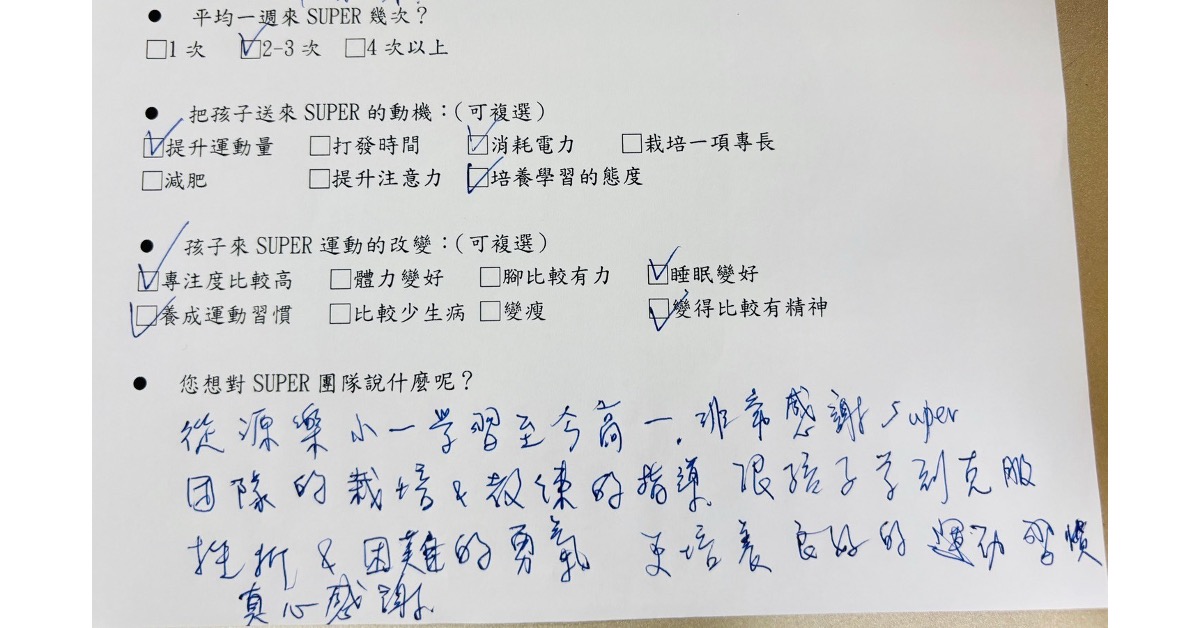 ● 平均一週來 SUPER 幾次？
□1 次 ☑2-3 次 □4 次以上
● 把孩子送來 SUPER 的動機：(可複選)
☑提升運動量 □打發時間 ☑消耗電力 □栽培一項專長
□減肥 □提升注意力 ☑培養學習的態度
● 孩子來 SUPER 運動的改變：(可複選)
☑專注度比較高 □體力變好 □腳比較有力 ☑睡眠變好
☑養成運動習慣 □比較少生病 □變瘦 ☑變得比較有精神
● 您想對 SUPER 團隊說什麼呢？
從源樂小一学習至今高一.非常感謝 Super
团隊的栽培&教練的指導 孩子学到克服
挫折&困難的勇氣 更培養良好的運动習慣
真心感謝